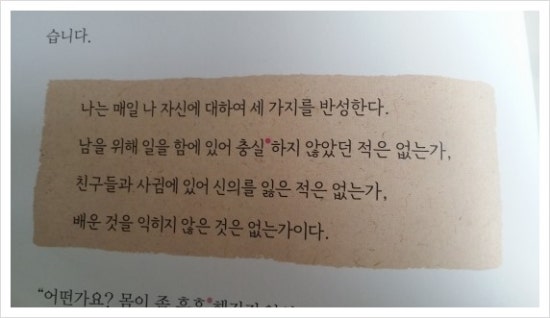 습니다.
나는 매일 나 자신에 대하여 세 가지를 반성한다.
남을 위해 일을 함에 있어 충실하지 않았던 적은 없는가,
친구들과 사귐에 있어 신의를 잃은 적은 없는가,
배운 것을 익히지 않은 것은 없는가이다.
“어떤가요? 몸이 좀